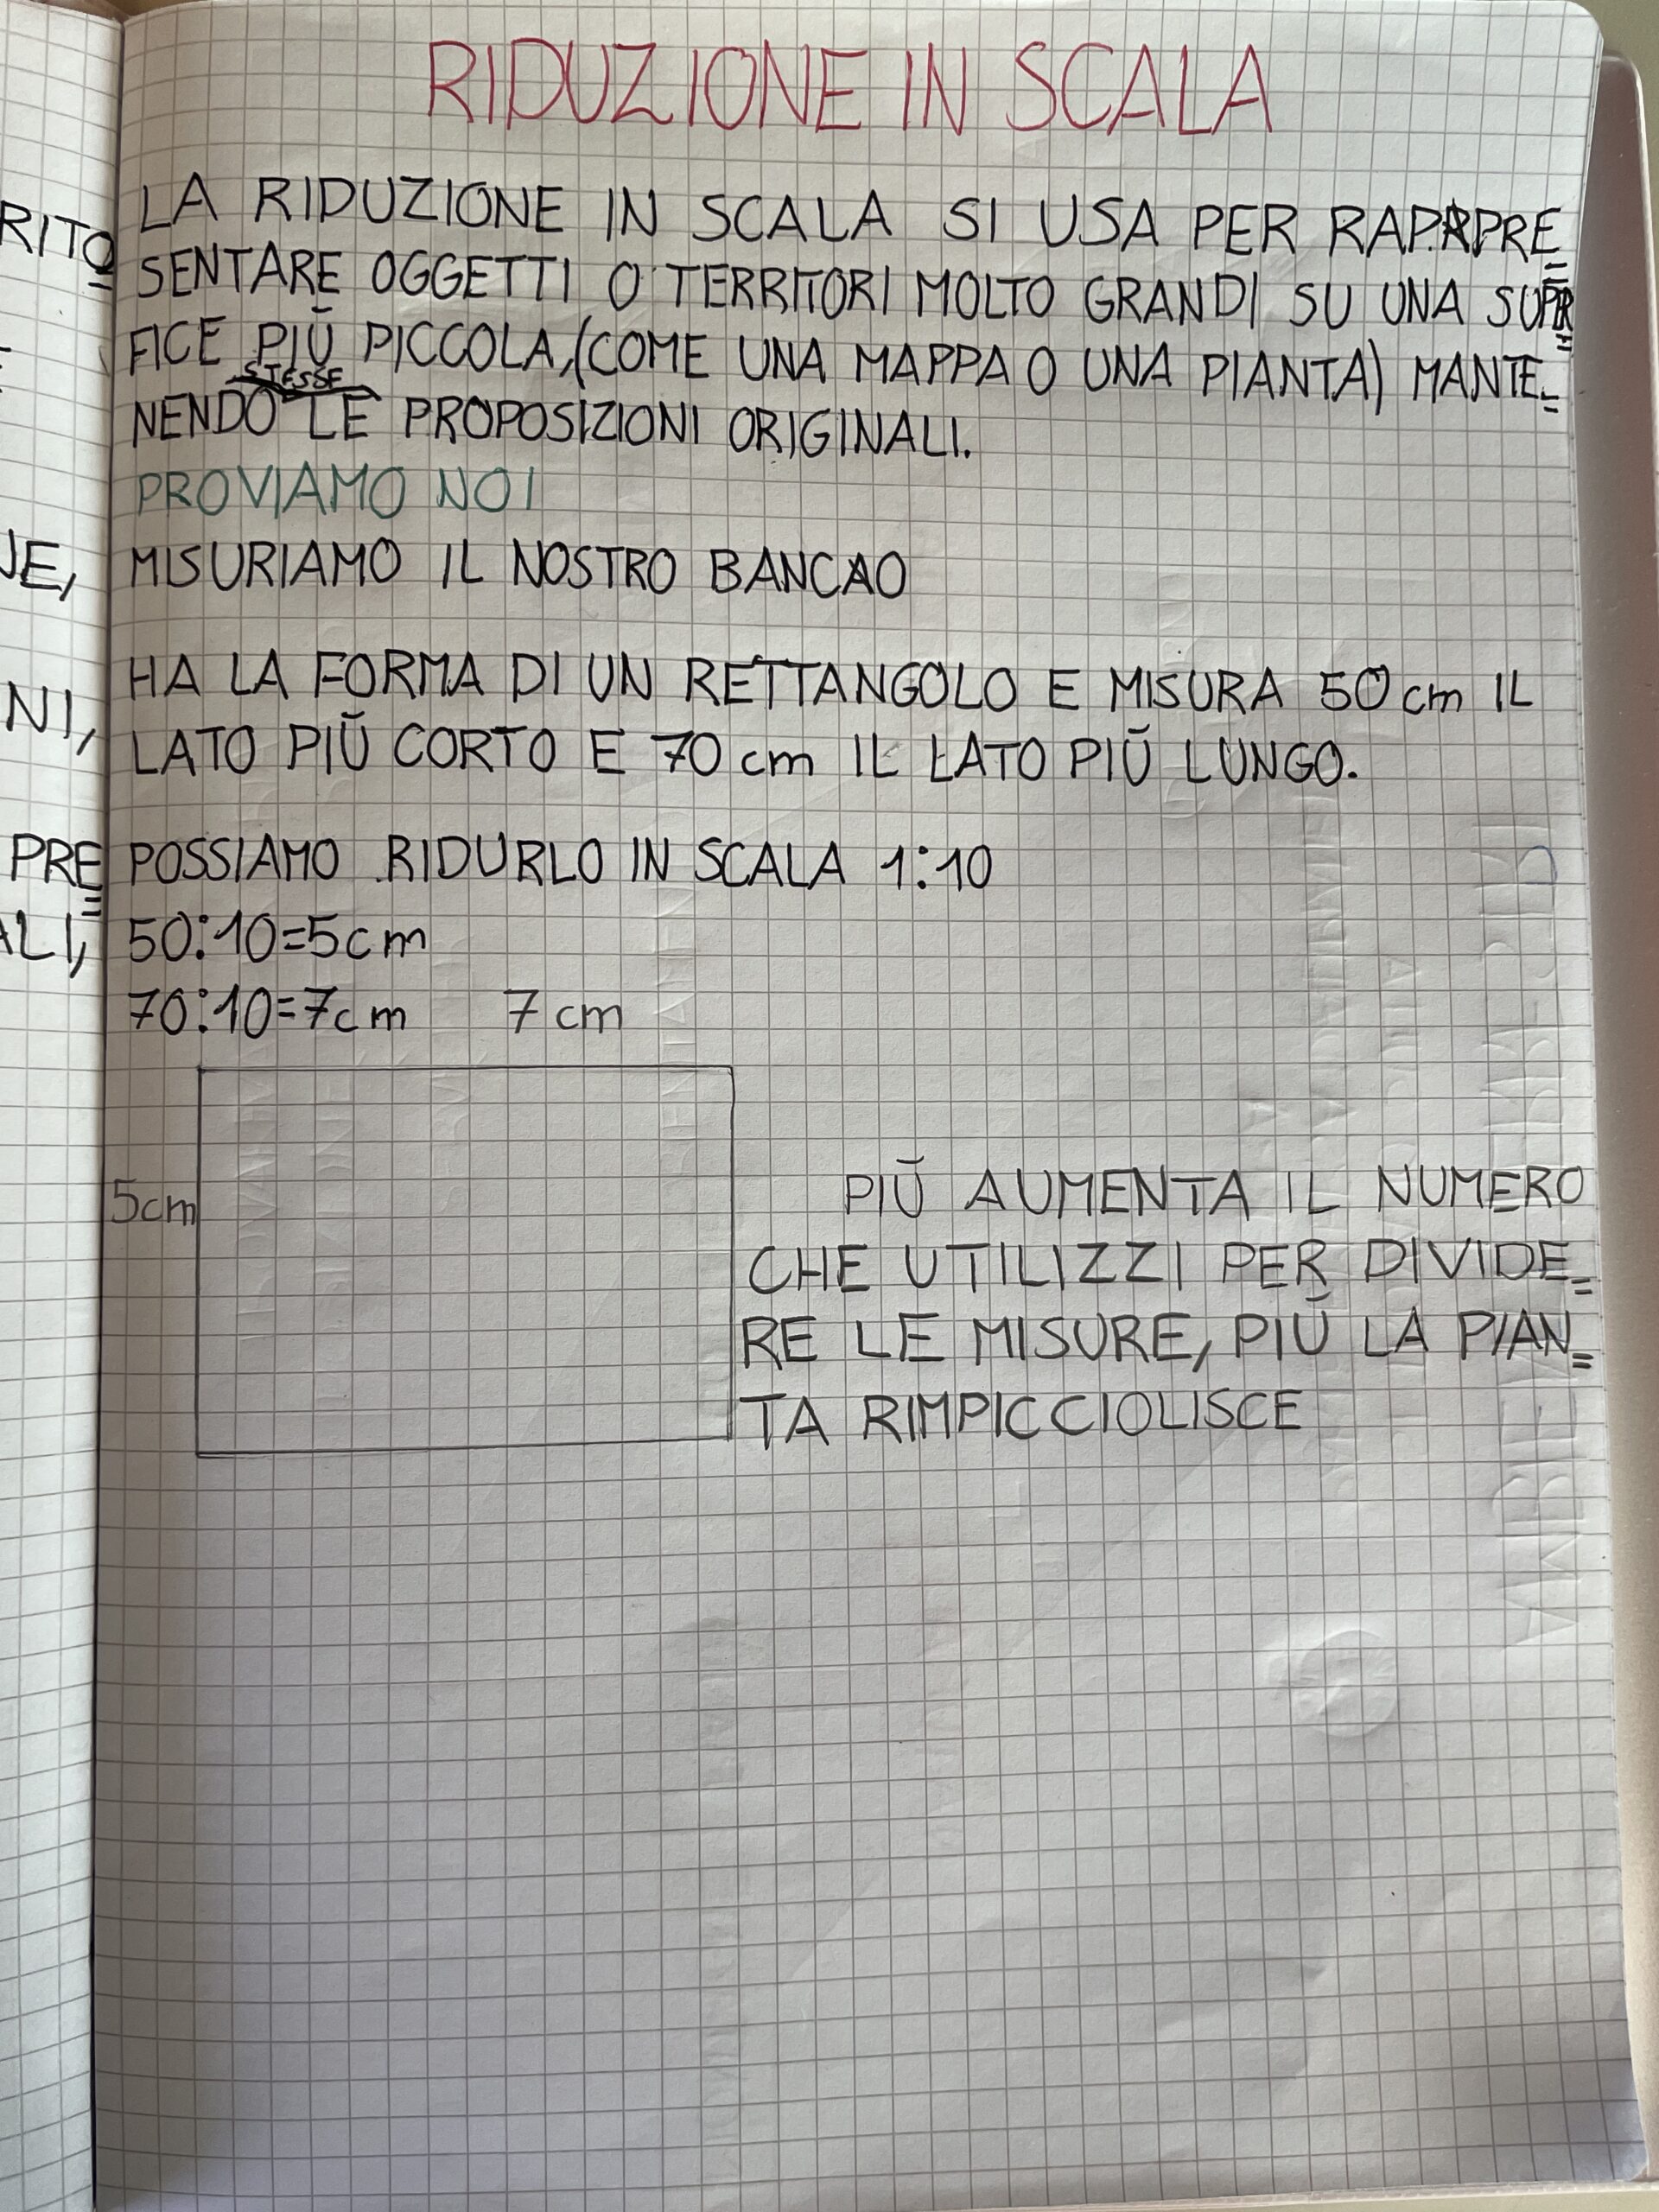 RIDUZIONE IN SCALA
LA RIDUZIONE IN SCALA SI USA PER RAPPRE=
SENTARE OGGETTI O TERRITORI MOLTO GRANDI SU UNA
FICE PIÙ PICCOLA, (COME UNA MAPPA O UNA PIANTA) MANTE=
STESSE
NENDO LE PROPOSIZIONI ORIGINALI.
PROVIAMO NOI
MISURIAMO IL NOSTRO BANCAO
HA LA FORMA DI UN RETTANGOLO E MISURA 50 cm IL
LATO PIÙ CORTO E 70 cm IL LATO PIÙ LUNGO.
POSSIAMO RIDURLO IN SCALA 1:10
50:10=5cm
70:10=7cm 7 cm
5cm
PIÙ AUMENTA IL NUMERO
CHE UTILIZZI PER DIVIDE=
RE LE MISURE, PIÙ LA PIAN=
TA RIMPICCIOLISCE
RITO
=
NI,
PRE
=
ALI,